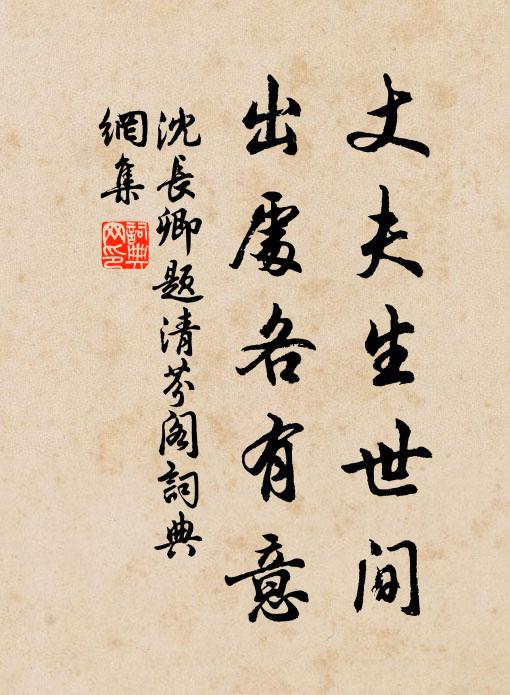 丈夫生世间
出處各有意
沈長卿题清芬阁詞典
網集
詞典
网印